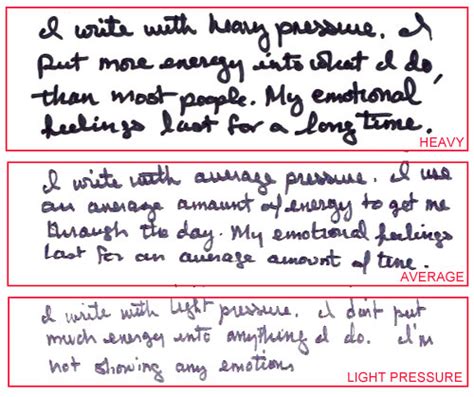 I write with heavy pressure. I
put more energy into what I do,
than most people. My emotional
feelings last for a long time.
HEAVY
I write with average pressure. I use
an average amount of energy to get me
through the day. My emotional feelings
last for an average amount of time.
AVERAGE
I write with light pressure. I don't put
much energy into anything I do. I'm
not showing any emotions
LIGHT PRESSURE